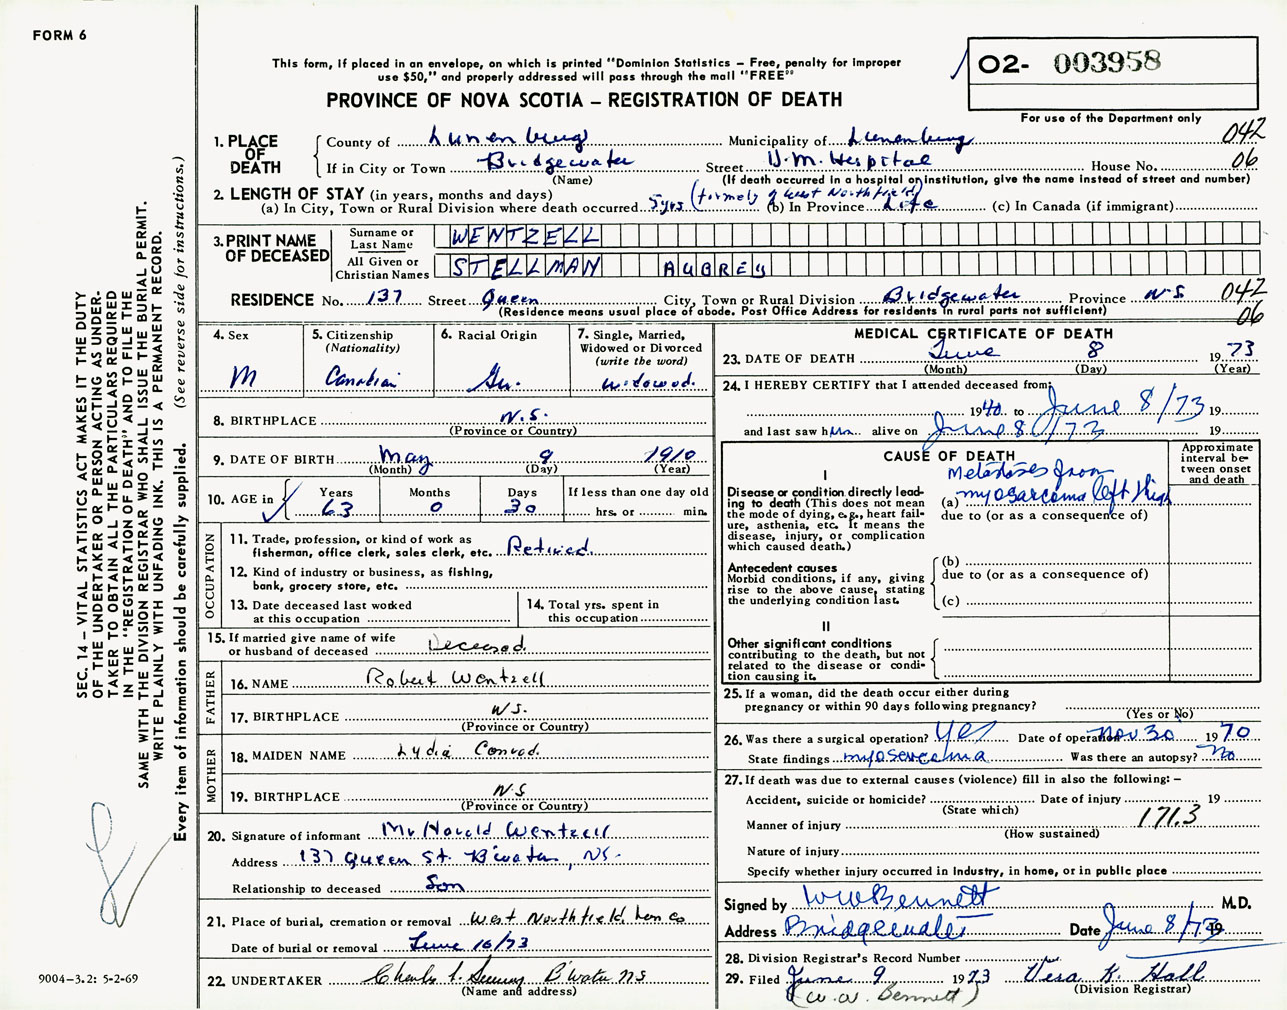 FORM 6
This form, if placed in an envelope, on which is printed "Dominion Statistics – Free, penalty for improper
use $50," and properly addressed will pass through the mail "FREE"
PROVINCE OF NOVA SCOTIA – REGISTRATION OF DEATH
O2- 003958
For use of the Department only
1. PLACE OF DEATH County of Lunenburg Municipality of Lunenburg 042
If in City or Town Bridgewater Street D.M. Hospital House No. 06
(Name) (If death occurred in a hospital or institution, give the name instead of street and number)
2. LENGTH OF STAY (in years, months and days) (formerly of West Northfield)
(a) In City, Town or Rural Division where death occurred 5 yrs (b) In Province Life (c) In Canada (if immigrant)
3. PRINT NAME OF DECEASED
Surname or Last Name WENTZELL
All Given or Christian Names STELLMAN AUBREY
RESIDENCE No. 137 Street Queen City, Town or Rural Division Bridgewater Province N.S 042
(Residence means usual place of abode. Post Office Address for residents in rural parts not sufficient) 06
4. Sex
M
5. Citizenship
(Nationality)
Canadian
6. Racial Origin
Ger.
7. Single, Married,
Widowed or Divorced
(write the word)
widowed.
8. BIRTHPLACE N.S.
(Province or Country)
9. DATE OF BIRTH May 9 1910
(Month) (Day) (Year)
10. AGE in Years Months Days If less than one day old
63 0 30 hrs. or min.
OCCUPATION
11. Trade, profession, or kind of work as
fisherman, office clerk, sales clerk, etc. Retired.
12. Kind of industry or business, as fishing,
bank, grocery store, etc.
13. Date deceased last worked
at this occupation
14. Total yrs. spent in
this occupation
15. If married give name of wife
or husband of deceased Deceased.
FATHER
16. NAME Robert Wentzell
17. BIRTHPLACE N.S.
(Province or Country)
MOTHER
18. MAIDEN NAME Lydia Conrad.
19. BIRTHPLACE N.S
(Province or Country)
20. Signature of informant Mr Harold Wentzell
Address 137 Queen St. B'water, NS.
Relationship to deceased Son
21. Place of burial, cremation or removal West Northfield Lun Co
Date of burial or removal June 10/73
22. UNDERTAKER Charles B'Water N S
(Name and address)
MEDICAL CERTIFICATE OF DEATH
23. DATE OF DEATH June 8 1973
(Month) (Day) (Year)
24. I HEREBY CERTIFY that I attended deceased from:
1940 to June 8/73 19
and last saw him alive on June 8/73 19
CAUSE OF DEATH
Approximate
interval be-
tween onset
and death
I
Disease or condition directly lead-
ing to death (This does not mean
the mode of dying, e.g., heart fail-
ure, asthenia, etc. It means the
disease, injury, or complication
which caused death.)
Metastases from
(a) myosarcoma left thigh
due to (or as a consequence of)
Antecedent causes
Morbid conditions, if any, giving
rise to the above cause, stating
the underlying condition last.
(b)
due to (or as a consequence of)
(c)
II
Other significant conditions
contributing to the death, but not
related to the disease or condi-
tion causing it.
25. If a woman, did the death occur either during
pregnancy or within 90 days following pregnancy?
(Yes or No)
26. Was there a surgical operation? Yes Date of operation Nov 30 1970
State findings myosarcoma Was there an autopsy? No
27. If death was due to external causes (violence) fill in also the following: –
Accident, suicide or homicide? Date of injury 19
(State which)
Manner of injury 171.3
(How sustained)
Nature of injury
Specify whether injury occurred in industry, in home, or in public place
Signed by WW Bennett M.D.
Address Bridgewater Date June 8/73 19
28. Division Registrar's Record Number
29. Filed June 9 1973 Vera K. Hall
(W.W. Bennett) (Division Registrar)
SEC. 14 – VITAL STATISTICS ACT MAKES IT THE DUTY
OF THE UNDERTAKER OR PERSON ACTING AS UNDER-
TAKER TO OBTAIN ALL THE PARTICULARS REQUIRED
IN THE "REGISTRATION OF DEATH" AND TO FILE THE
SAME WITH THE DIVISION REGISTRAR WHO SHALL ISSUE THE BURIAL PERMIT.
WRITE PLAINLY WITH UNFADING INK. THIS IS A PERMANENT RECORD.
Every item of information should be carefully supplied. (See reverse side for instructions.)
9004-3.2: 5-2-69